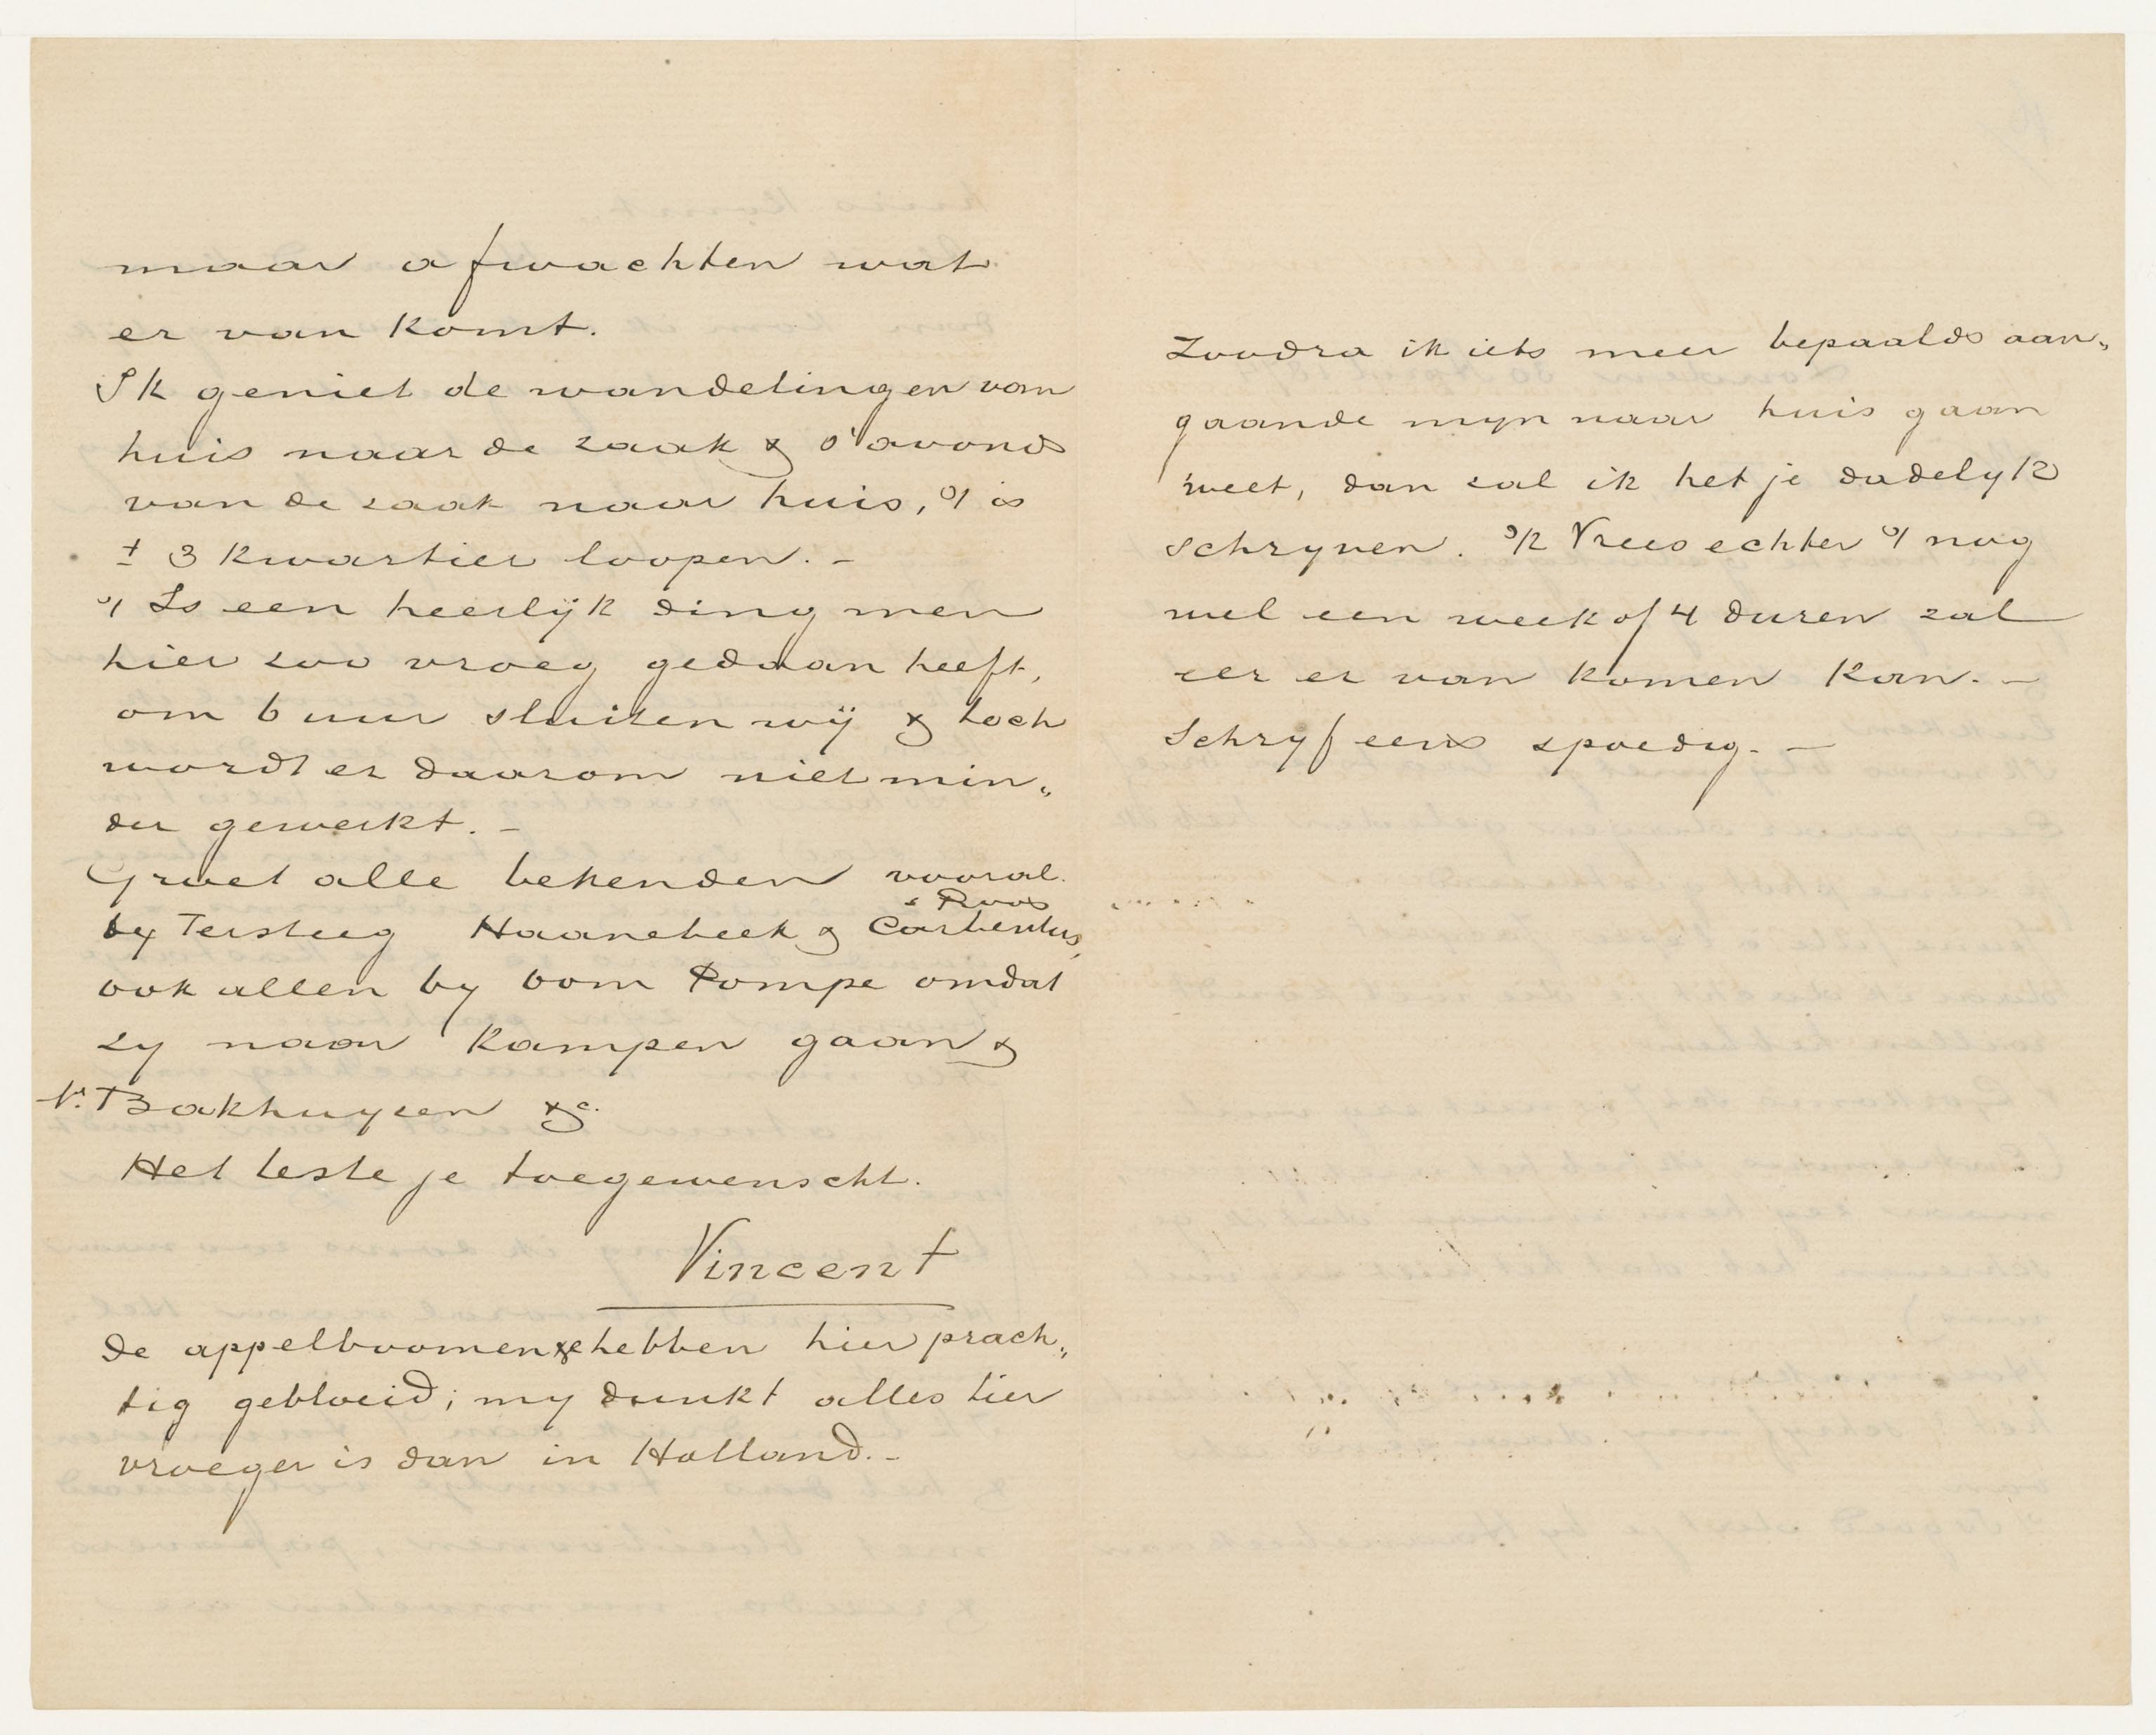 maar afwachten wat
er van komt.
Ik geniet de wandelingen van
huis naar de zaak & s'avonds
van de zaak naar huis, 't is
± 3 kwartier loopen. –
't Is een heerlijk ding men
hier zoo vroeg gedaan heeft,
om 6 uur sluiten wij & toch
wordt er daarom niet min„
der gewerkt. –
Groet alle bekenden vooral
& Roos
by Tersteeg Haanebeek & Carbentus,
ook allen by oom Pompe omdat
zy naar Kampen gaan &
Bakhuyzen &c.
Het beste je toegewenscht.
Vincent
De appelboomen &c hebben hier prach„
tig gebloeid; my dunkt alles hier
vroeger is dan in Holland. –
Zoodra ik iets meer bepaalds aan„
gaande myn naar huis gaan
weet, dan zal ik het je dadelyk
schryven. 'k Vrees echter 't nog
wel een week of 4 duren zal
eer er van komen kan. –
Schryf eens spoedig. –